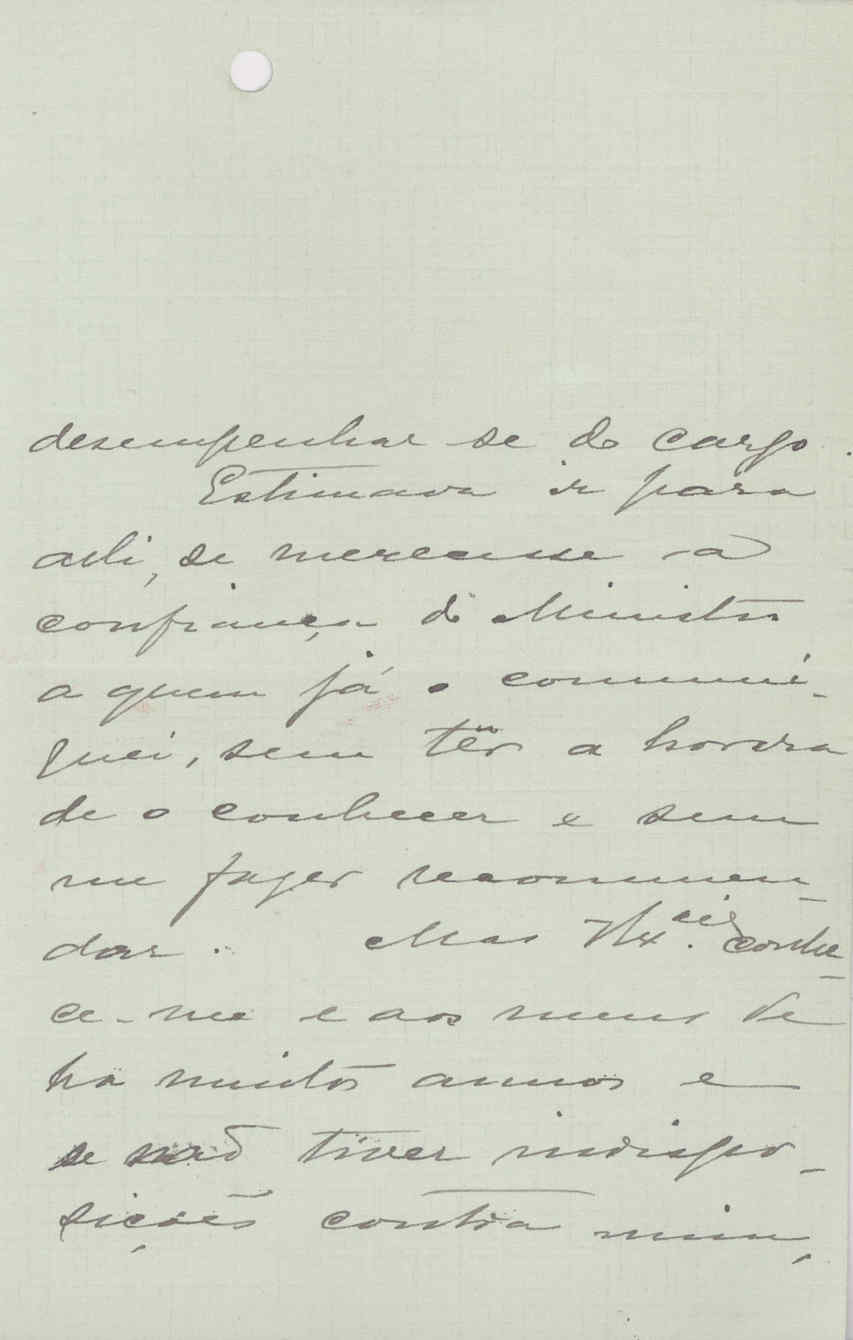 desempenhar se do cargo.
Estimava ir para
alli, se merecesse a
confiança do Ministro
a quem já o communi-
quei, sem têr a honra
de o conhecer e sem
me fazer recommen-
dar. Mas V. Ex.cia conhe-
ce-me e aos meus de
ha muitos annos e
se não tiver indispo-
sições contra mim,